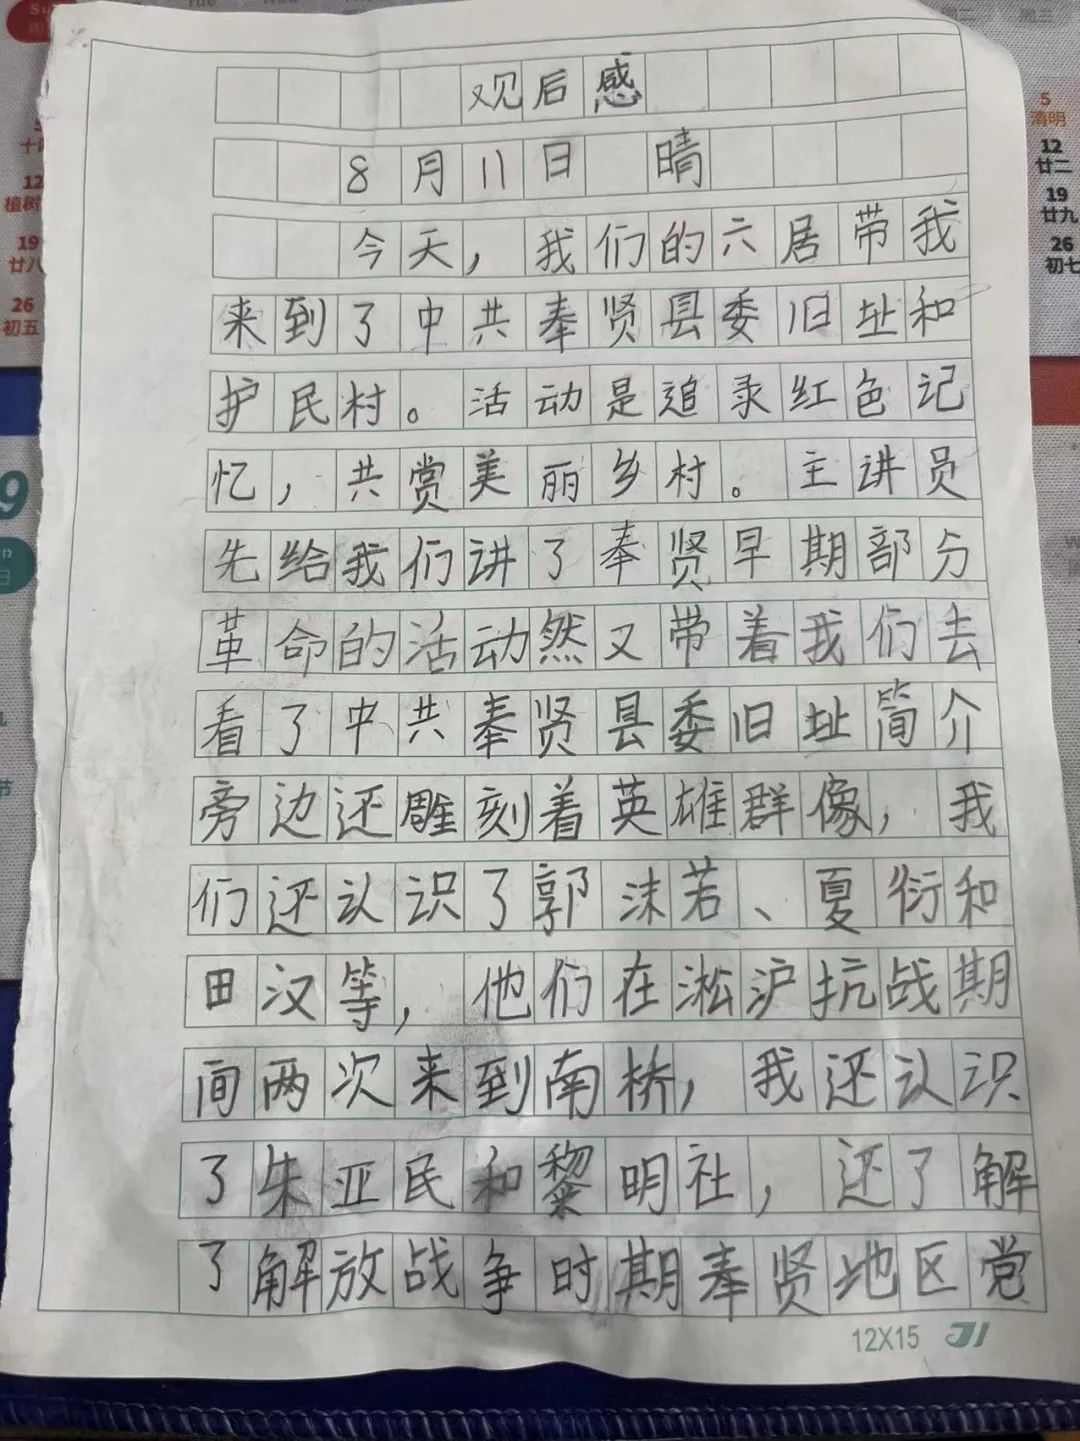 观后感
8月11日 晴
今天，我们的六居带我
来到了中共奉贤县委旧址和
护民村。活动是追录红色记
忆，共赏美丽乡村。主讲员
先给我们讲了奉贤早期部分
革命的活动然又带着我们去
看了中共奉贤县委旧址简介
旁边还雕刻着英雄群像，我
们还认识了郭沫若、夏衍和
田汉等，他们在淞沪抗战期
间两次来到南桥，我还认识
了朱亚民和黎明社，还了解
了解放战争时期奉贤地区党
12X15
5
清明
12
廿二
19
廿九
26
初七
12
植树
19
廿八
26
初五
9